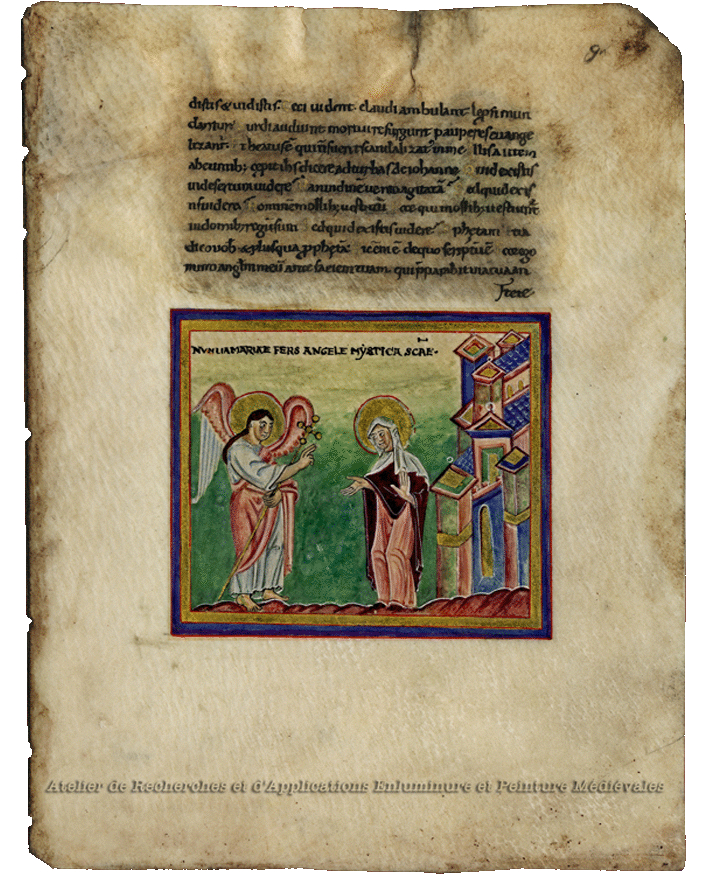 distis & uidistis ceci uident. claudi ambulant. lepsi mun
dantur surdi audiunt mortui resurgunt pauperes euange
scandalizat in me. Illis autem
abeuntib; cepit ihs dicere ad turbas de iohanne quid existis
in desertum uidere arundinē uento agitatā sed quid existis
uidere mollib; uestitū ecce qui mollib; uestiunt
in domib; regū sunt sed quid existis uidere phetam etiā
dico uob & plus quā pphetā hic ē de quo scriptū ē ecce ego
mitto anglm meū ante faciem tuam. qui pparabit uiā tuā an
NVNCIA MARIAE FERS ANGELE MYSTICA SCAE.
Atelier de Recherches et d'Applications Enluminure et Peinture Médiévales